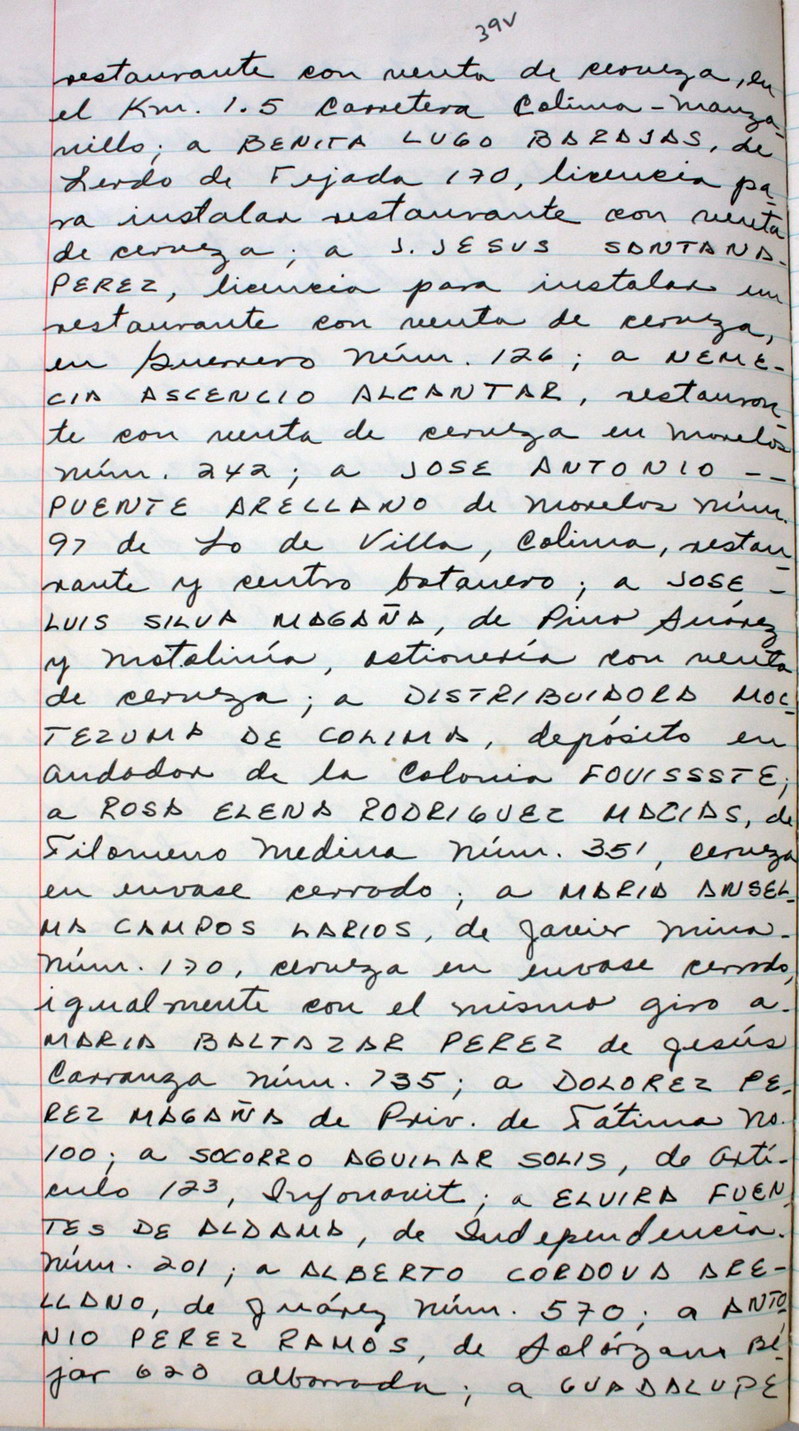 39v
restaurante con venta de cerveza, en
el Km. 1.5 Carretera Colima-Manza-
nillo; a BENITA LUGO BARAJAS, de
Lerdo de Tejada 170, licencia pa-
ra instalar restaurante con venta
de cerveza; a J. JESUS SANTANA-
PEREZ, licencia para instalar un
restaurante con venta de cerveza,
en Guerrero Núm. 126; a NEME-
CIA ASCENCIO ALCANTAR, restauran-
te con venta de cerveza en Morelos
núm. 242; a JOSE ANTONIO --
PUENTE ARELLANO de Morelos núm.
97 de Lo de Villa, Colima, restau-
rante y centro botanero; a JOSE -
LUIS SILVA MAGAÑA, de Pino Suárez
y Motolinía, ostionería con venta
de cerveza; a DISTRIBUIDORA MOC-
TEZUMA DE COLIMA, depósito en
andador de la Colonia FOVISSSTE;
a ROSA ELENA RODRIGUEZ MACIAS, de
Filomeno Medina Núm. 351, cerveza
en envase cerrado; a MARIA ANSEL-
MA CAMPOS LARIOS, de Javier Mina-
Núm. 170, cerveza en envase cerrado,
igualmente con el mismo giro a-
MARIA BALTAZAR PEREZ de Jesús
Carranza núm. 735; a DOLOREZ PE-
REZ MAGAÑA de Priv. de Fátima No.
100; a SOCORRO AGUILAR SOLIS, de Artí-
culo 123, Infonavit; a ELVIRA FUEN-
TES DE ALDAMA, de Independencia-
Núm. 201; a ALBERTO CORDOVA ARE-
LLANO, de Juárez Núm. 570; a ANTO-
NIO PEREZ RAMOS, de Solórzano Bé-
jar 620 alborrada; a GUADALUPE